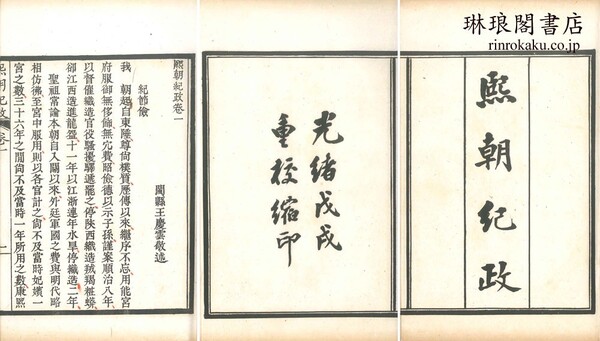 琳琅閣書店
rinrokaku.co.jp
熙朝紀政
光緒戊戌
重校縮印
熙朝紀政卷一
閩縣王慶雲敬述
紀節儉
我 朝起自東陲尊尙樸質歷傳以來繼序不忘用能宮
府服御無侈備無冗費昭儉德以示子孫謹案順治八年
以督催織造官役騷擾驛遞罷之停陝西織造羢羯粧蟒
卻江西造進龍盌十一年以江浙連年水旱停織造二年
聖祖常論本朝自入關以來外廷軍國之費與明代略
相仿彿至宮中服用則以各宮計之尙不及當時妃嬪一
宮之數三十六年之間尙不及當時一年所用之數康熙
熙朝紀政 卷一 一